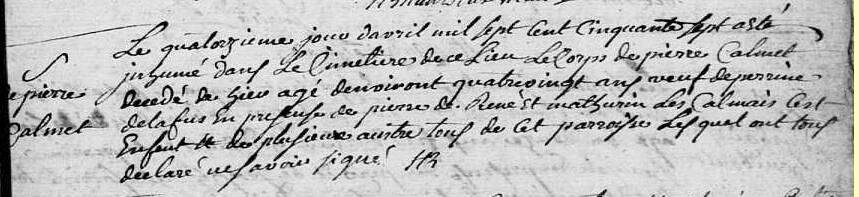 Le quatorzieme jour davril mil sept cent cinquante sept a esté
S
inhumé dans Le Cimetiere de ce Lieu Le Corps de pierre Calmet
de pierre
decedé de hier agé denviront quatrevingt ans veuf de perrine
Calmet
delafus En presense de pierre de René Et mathurin Les Calmais Cest
Enfent et de plusieur austre tous de Cet parroisse Lesquel ont tous
declaré ne savoir signé